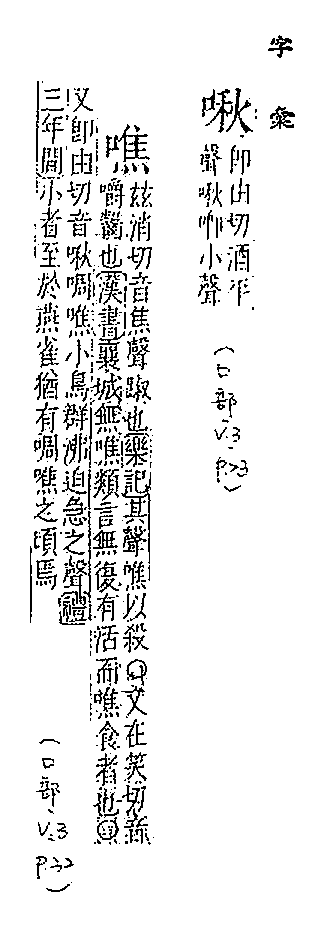 字彙
啾 即由切酒平
聲啾咻小聲
(口部 V.3 P.23)
噍 茲消切音焦聲踧也樂記其聲噍以殺〇又在笑切
嚼齧也漢書襄城無噍類言無復有活而噍食者也〇
又即由切音啾啁噍小鳥群沸迫急之聲禮
三年間小者至於燕雀猶有啁噍之頃焉
(口部 V.3 P.32)